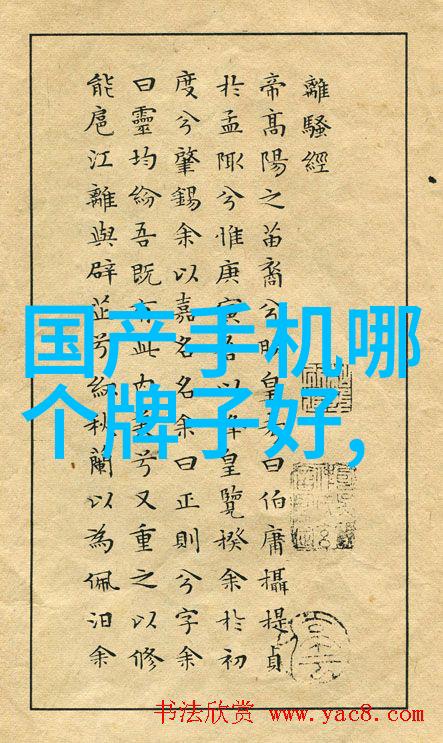 離騷經
帝高陽之苗裔兮朕皇考曰伯庸攝提貞
於孟陬兮惟庚寅吾以降皇覽揆余於初
度兮肇錫余以嘉名名余曰正則兮字余
曰靈均紛吾既有此内美兮又重之以修
能扈江離與辟芷兮紉秋蘭以為佩汩余
国产手机哪
个牌子好,
书法欣赏 www.yac8.com